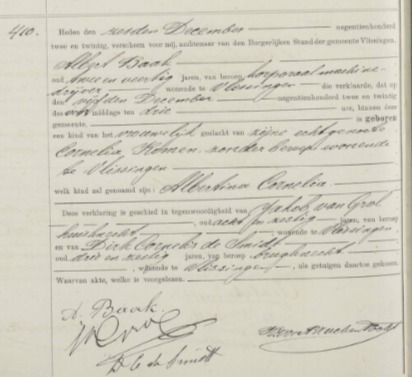 410.
Heden den zesden December negentienhonderd
twee en twintig, verscheen voor mij, ambtenaar van den Burgerlijken Stand der gemeente Vlissingen,
Albert Baak
oud twee en veertig jaren, van beroep korporaal machine-
drijver, wonende te Vlissingen die verklaarde, dat op
den vijfden December negentienhonderd twee en twintig
des middags ten drie ure, binnen deze
gemeente, is geboren
een kind van het vrouwelijk geslacht van zijne echtgenoote
Cornelia Komen, zonder beroep, wonende
te Vlissingen
welk kind zal genaamd zijn: Albertina Cornelia.
Deze verklaring is geschied in tegenwoordigheid van Jakob van Grol
huisknecht, oud acht en zestig jaren, van beroep
wonende te Vlissingen,
en van Dirk Cornelis de Smidt
oud drie en zestig jaren, van beroep brugknecht
, wonende te Vlissingen, als getuigen daartoe gekozen.
Waarvan akte, welke is voorgelezen.
A. Baak.
D C de Smidt